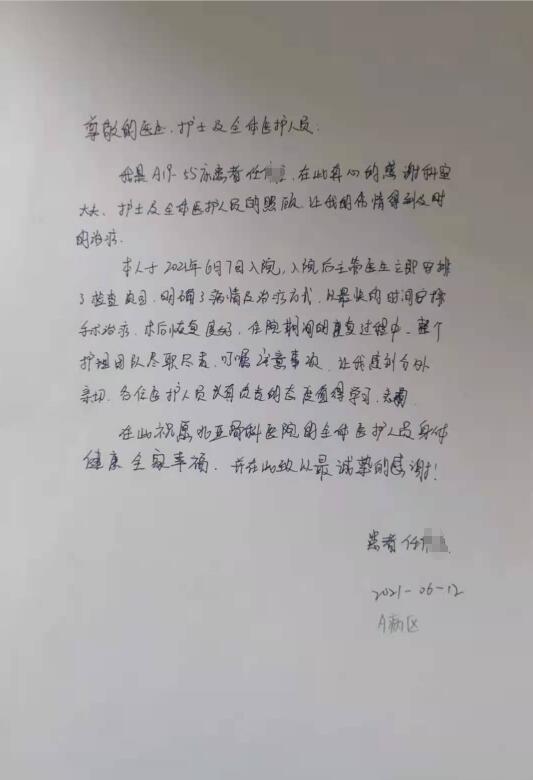 尊敬的医生、护士及全体医护人员:
我是A19-55床患者任 在此真心的感谢科室
大夫、护士及全体医护人员的照顾,让我的伤情得到及时
的治疗.
本人于2021年6月7日入院,入院后主管医生立即安排
了检查项目,明确了病情及治疗方式,以最快的时间安排
手术治疗,术后恢复良好,住院期间的康复过程中,整个
护理团队尽职尽责,叮嘱注意事项,让我感到分外
亲切,各位医护人员认真负责的态度值得学习,
在此祝愿北亚骨科医院的全体医护人员身体
健康 全家幸福,并在此致以最诚挚的感谢!
患者 任
2021-06-12
A病区